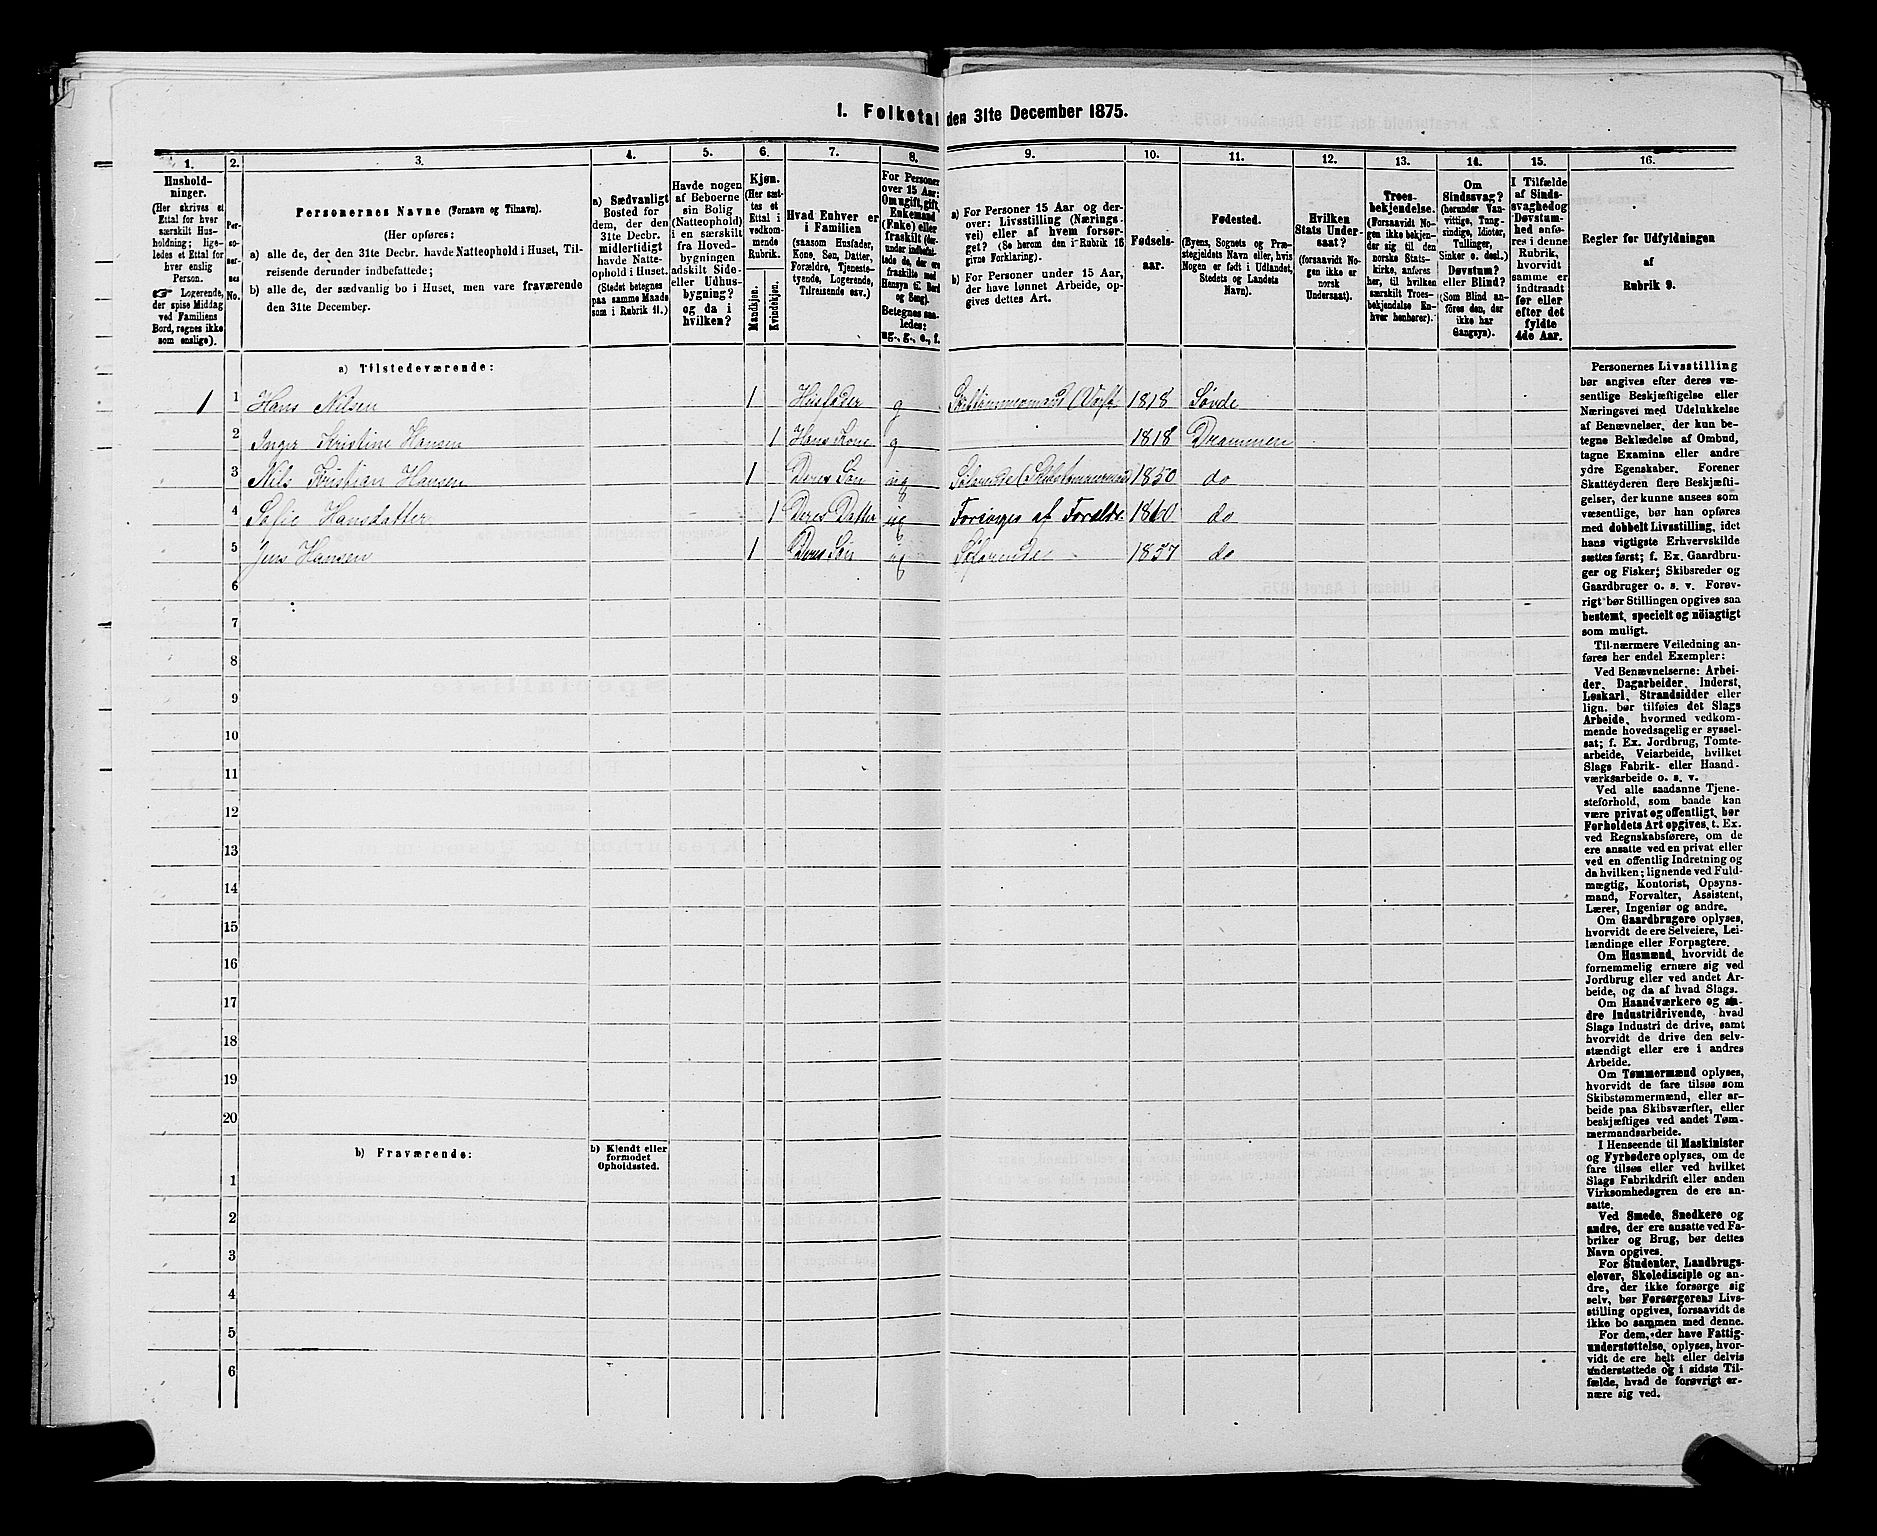 1. Folketal den 31te December 1875.
1.
2.
3.
4.
5.
6.
7.
8.
9.
10.
11.
12.
13.
14.
15.
16.
Hushold-
ninger.
(Her skrives et
Ettal for hver
særskilt Hus-
holdning; lige-
ledes et Ettal for
hver enslig
Person.
☞ Logerende,
der spise Middag
ved Familiens
Bord, regnes ikke
som enslige).
Per-
so-
ner-
nes
No.
Personernes Navne (Fornavn og Tilnavn).
(Her opføres:
a) alle de, der den 31te Decbr. havde Natteophold i Huset, Til-
reisende derunder indbefattede;
b) alle de, der sædvanlig bo i Huset, men vare fraværende
den 31te December.
a) Sædvanligt
Bosted for
dem, der den
31te Decbr.
midlertidigt
havde Natte-
ophold i Huset.
(Stedet betegnes
paa samme Maade
som i Rubrik 11.)
Havde nogen
af Beboerne
sin Bolig
(Natteophold)
i en særskilt
fra Hoved-
bygningen
adskilt Side-
eller Udhus-
bygning?
og da i
hvilken?
Kjøn.
(Her sæt-
tes et
Ettal i
vedkom-
mende
Rubrik.
Mandkjøn.
Kvindekjøn.
Hvad Enhver er
i Familien
(saasom Husfader,
Kone, Søn, Datter,
Forældre, Tjeneste-
tyende, Logerende,
Tilreisende osv.)
For Personer
over 15 Aar:
Om ugift, gift,
Enkemand
(Enke) eller
fraskilt (her-
under indbefat-
tede de, der ere
fraskilte med
Hensyn til Bord
og Seng).
Betegnes saa-
ledes:
ug., g., e., f.
a) For Personer 15 Aar og der-
over: Livsstilling (Nærings-
vei) eller af hvem forsør-
get? (Se herom den i Rubrik 16
givne Forklaring).
b) For Personer under 15 Aar,
der have lønnet Arbeide, op-
gives dettes Art.
Fødsels-
aar.
Fødested.
(Byens, Sognets og Præ-
stegjeldets Navn eller, hvis
Nogen er født i Udlandet,
Stedets og Landets
Navn).
Hvilken
Stats Under-
saat?
(forsaavidt No-
gen ikke er
norsk
Undersaat).
Troes-
bekjendelse.
(Forsaavidt No-
gen ikke bekjen-
der sig til den
norske Stats-
kirke, anføres
her, til hvilken
særskilt Troes-
bekjendelse En-
hver henhører).
Om
Sindssvag?
(herunder Van-
vittige, Tung-
sindige, Idioter,
Tullinger,
Sinker o. desl.)
Døvstum?
eller Blind?
(Som Blind an-
føres den, der
ikke har
Gangsyn).
I Tilfælde
af Sinds-
svaghed og
Døvstum-
hed anfø-
res i denne
Rubrik,
hvorvidt
samme er
indtraadt
før eller
efter det
fyldte
4de Aar.
Regler for Udfyldningen
af
Rubrik 9.
a) Tilstedeværende:
1 1 Hans Nilsen 1 Husfader g 1818 Søvde
2 Inger Kristine Hansen 1 Hans Kone g 1818 Drammen
3 Nils Kristian Hansen 1 Deres Søn ug 1850 do
4 Sofie Hansdatter 1 Deres Datter ug Forsørges af Foraldr. 1860 do
5 Jens Hansen 1 Deres Søn ug Søfarende 1857 do
6
7
8
9
10
11
12
13
14
15
16
17
18
19
20
b) Fraværende:
b) Kjendt eller
formodet
Opholdssted.
1
2
3
4
5
6
Personernes Livsstilling
bør angives efter deres væ-
sentlige Beskjæftigelse eller
Næringsvei med Udelukkelse
af Benævnelser, der kun be-
tegne Beklædelse af Ombud,
tagne Examina eller andre
ydre Egenskaber. Forener
Skatteyderen flere Beskjæfti-
gelser, der kunne ansees som
væsentlige, bør han opføres
med dobbelt Livsstilling, idet
hans vigtigste Erhvervskilde
sættes først; f. Ex. Gaardbru-
ger og Fisker; Skibsreder og
Gaardbruger o. s. v. Forøv-
rigt bør Stillingen opgives saa
bestemt, specielt og nöiagtigt
som muligt.
Til nærmere Veiledning an-
føres her endel Exempler:
Ved Benævnelserne: Arbei-
der, Dagarbeider, Inderst,
Løskarl, Strandsidder eller
lign. bør tilføies det Slags
Arbeide, hvormed vedkom-
mende hovedsagelig er syssel-
sat; f. Ex. Jordbrug, Tomte-
arbeide, Veiarbeide, hvilket
Slags Fabrik- eller Haand-
værksarbeide o. s. v.
Ved alle saadanne Tjene-
steforhold, som baade kan
være privat og offentligt, bør
Forholdets Art opgives, t. Ex.
ved Regnskabsførere, om de
ere ansatte ved en privat eller
ved en offentlig Indretning og
da hvilken; lignende ved Fuld-
mægtig, Kontorist, Opsyns-
mand, Forvalter, Assistent,
Lærer, Ingeniør og andre.
Om Gaardbrugere oplyses,
hvorvidt de ere Selveiere, Lei-
lændinge eller Forpagtere.
Om Husmænd, hvorvidt de
fornemmelig ernære sig ved
Jordbrug eller ved andet Ar-
beide, og da af hvad Slags.
Om Haandværkere og an-
dre Industridrivende, hvad
Slags Industri de drive, samt
hvorvidt de drive den selv-
stændigt eller ere i andres
Arbeide.
Om Tømmermænd oplyses,
hvorvidt de fare tilsøs som
Skibstømmermænd, eller ar-
beide paa Skibsværfter, eller
beskjæftiges ved andet Tøm-
mermandsarbeide.
I Henseende til Maskinister
og Fyrbødere oplyses, om de
fare tilsøs eller ved hvilket
Slags Fabrikdrift eller anden
Virksomhedsgren de ere an-
satte.
Ved Smede, Snedkere og
andre, der ere ansatte ved Fa-
briker og Brug, bør dettes
Navn opgives.
For Studenter, Landbrugs-
elever, Skoledisciple og an-
dre, der ikke forsørge sig
selv, bør Forsørgerens Livs-
stilling opgives, forsaavidt de
ikke bo sammen med denne.
For dem, der have Fattig-
understøttelse, oplyses, hvor-
vidt de ere helt eller delvis
understøttede og i sidste Til-
fælde, hvad de forøvrigt er-
nære sig ved.